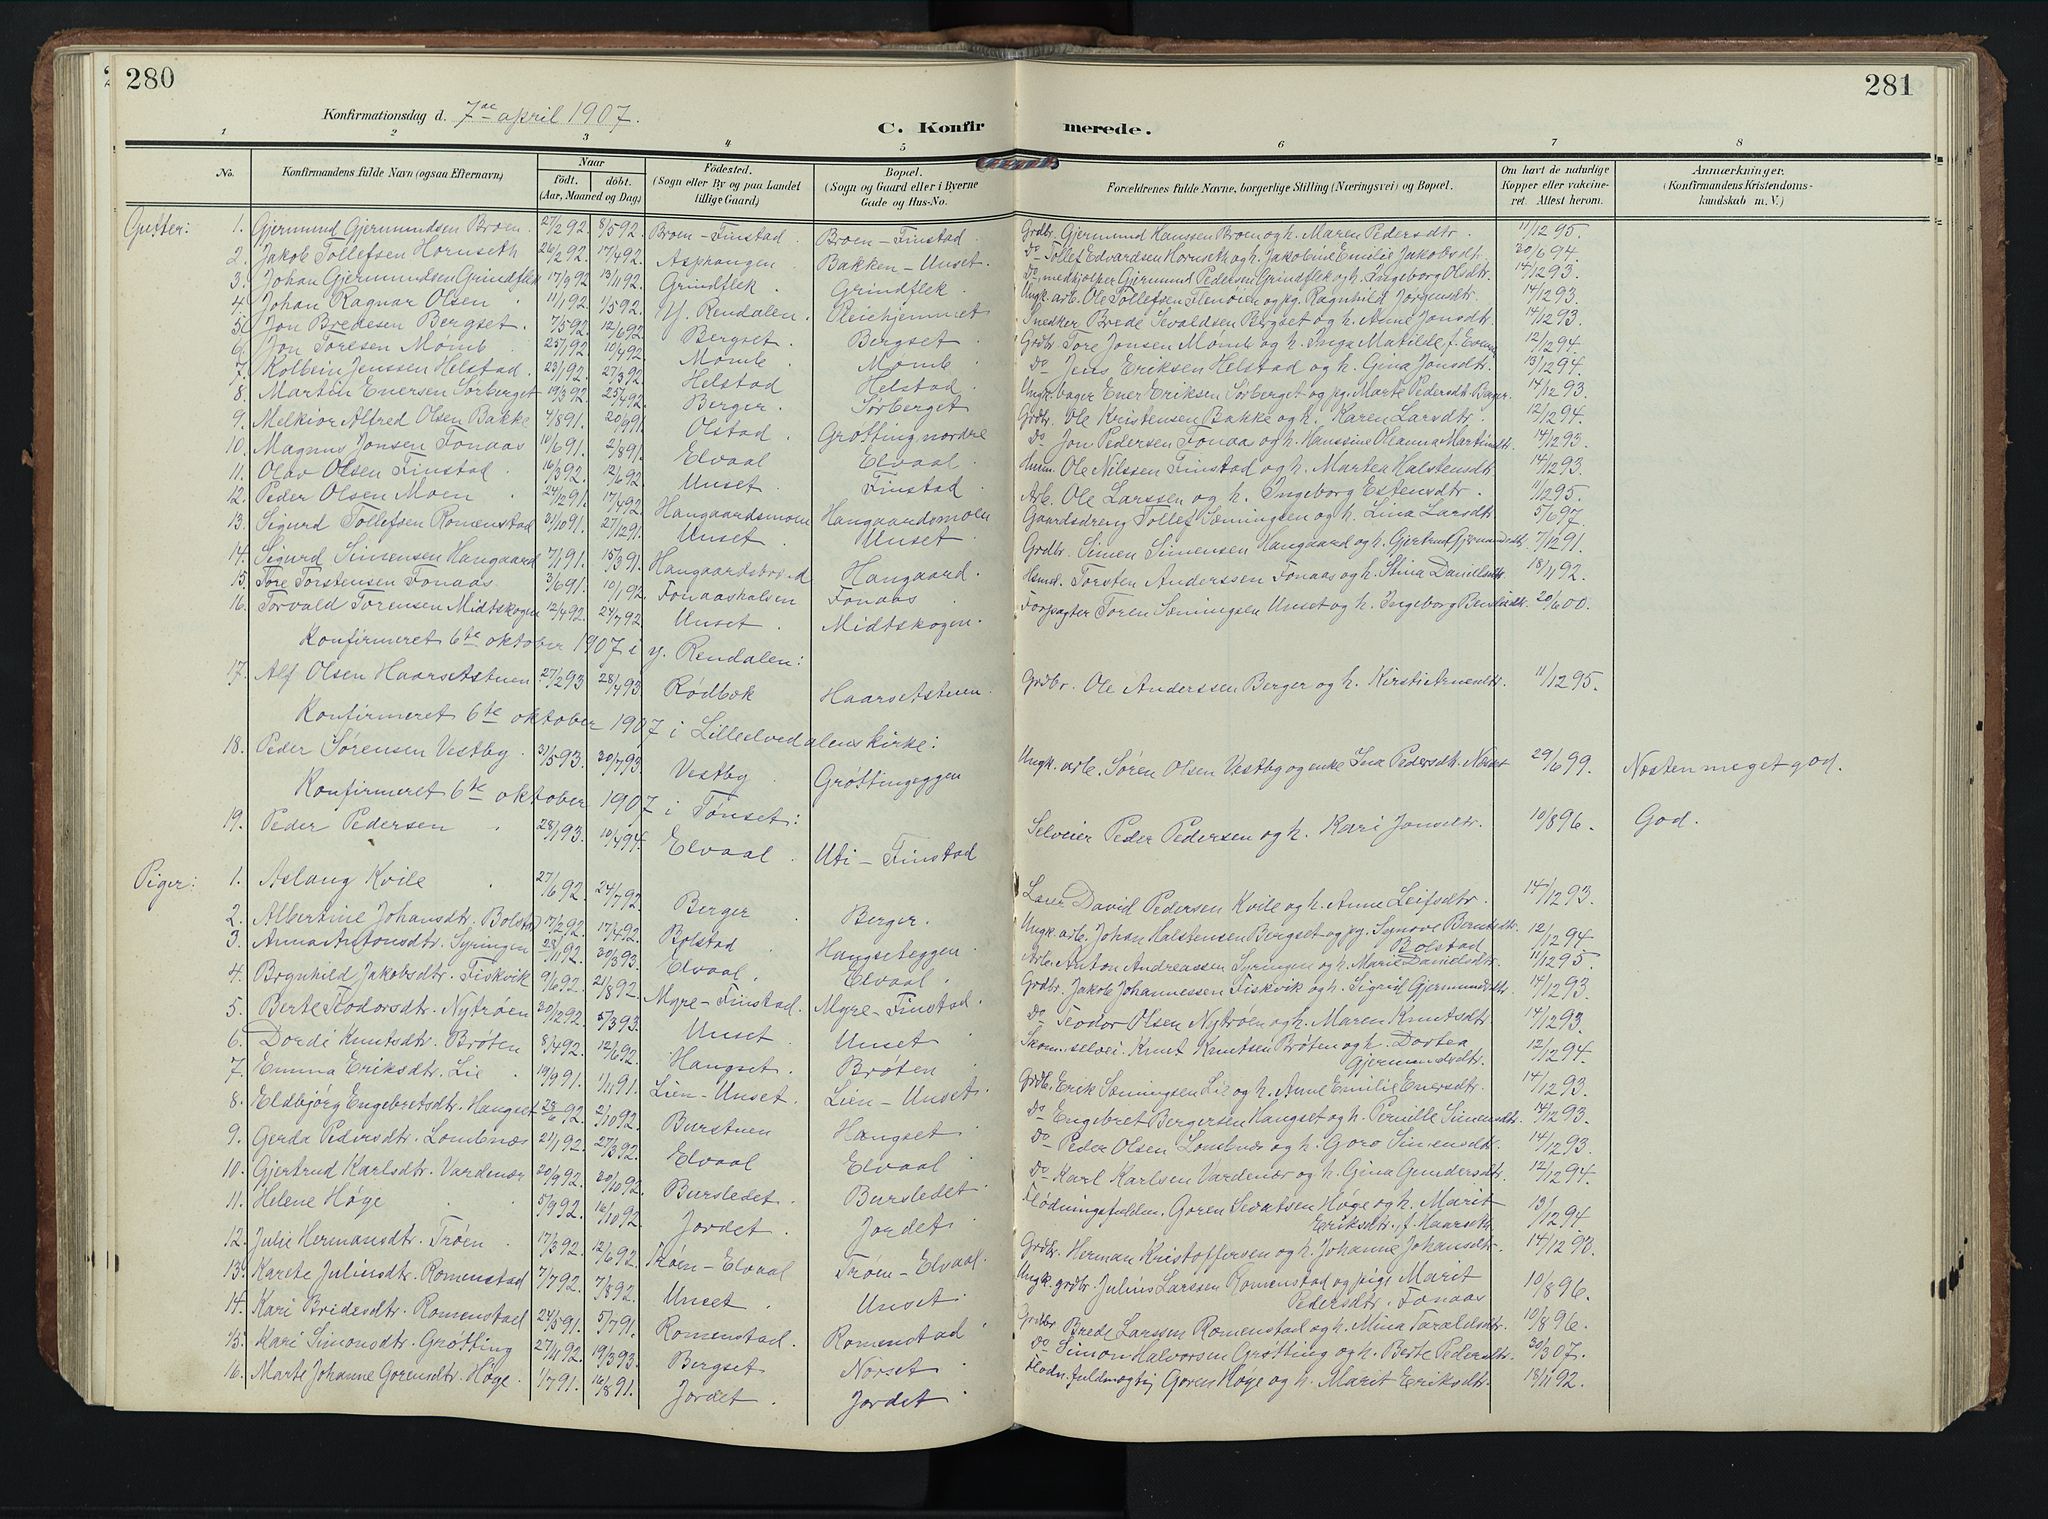 280
281
Konfirmationsdag d. 7de april 1907.
C. Konfirmerede.
1 2 3 4 5 6 7 8
No. Konfirmandens fulde Navn (ogsaa Efternavn). Naar födt. döbt. (Aar, Maaned og Dag). Födested. (Sogn eller By og paa Landet tillige Gaard) Bopel. (Sogn og Gaard eller i Byerne Gade og Hus-No. Forældrenes fulde Navne, borgerlige Stilling (Næringsvei) og Bopel. Om havt de naturlige Kopper eller vakcineret. Attest herom. Anmærkninger. (Konfirmandens Kristendomskundskab m. V.)
Gutter: 1. Gjermund Gjermundsen Broen. 27/2 92. 8/5 92. Broen-Finstad Broen-Finstad. Grdbr. Gjermund Hanssen Broen og h. Maren Pedersdtr. 11/12 95.
2. Jakob Tollefsen Hornseth 26/2 92. 17/4 92. Asphaugen Bakken-Unset. Do Tollef Edvardsen Hornseth og h. Jakobine Emilie Jakobsdt. 30/6 94.
3. Johan Gjermundsen Grindflek 17/9 92 13/11 92. Grindflek. Grindflek. Do, medhjælper Gjermund Pedersen Grindflek og h. Ingeborg Olsdtr. 14/12 93.
4. Johan Ragnar Olsen 11/1 92. 1/5 92. Y. Rendalen. Ung.k. arb. Ole Tollefsen Flenøien og pg. Ragnhild Jørgensdtr. 14/12 93.
5. Jon Bredesen Bergset. 7/5 92. 12/6 92. Bergset. Bergset. Snedker Brede Sevaldsen Bergset og h. Anne Jonsdtr. 14/12 93.
6. Jon Toresen Mømb 25/1 92. 10/4 92. Mømb. Mømb. Grdbr. Tore Jonsen Mømb og h. Inga Matilde f. Evene 12/12 94.
7. Kolbein Jenssen Helstad. 23/1 92. 27/3 92. Helstad Helstad. Do Jens Eriksen Helstad og h. Gina Jonsdtr. 13/12 94.
8. Martin Enersen Sørberget 19/3 92. 25/4 92. Berger. Sørberget Ungk. bager Ener Eriksen Sørberget og pg. Marte Pedersdt. Berger. 14/12 93.
9. Melkior Alfred Olsen Bakke 4/8 91. 20/9 91. Olstad. Grøtting nordre Grdbr. Ole Kristensen Bakke og h. Karen Larsdtr. 12/12 94.
10. Magnus Jonsen Fonaas 10/6 91. 2/8 91. Elvaal Elvaal. Do Jon Pedersen Fonaas og h. Hanssine Oleanna Martinsdtr. 14/12 93.
11. Olav Olsen Finstad. 16/3 92. 12/6 92. Unset. Finstad. Husm. Ole Nilssen Finstad og h. Martea Halstensdtr. 14/12 93.
12. Peder Olsen Moen. 24/2 91. 17/4 92. Hangaardsmoen Hangaardsmoen Arb. Ole Larssen og h. Ingeborg Estensdtr. 11/12 95.
13. Sigurd Tollefsen Romenstad 31/10 91. 27/12 91. Unset. Unset. Gaardsdreng Tollef Sæmingsen og h. Lina Larsdtr. 5/6 97.
14. Sigurd Simensen Hangaard 7/1 91. 15/3 91. Hangaard. Grdbr. Simen Simensen Hangaard og h. Gjertrud Gjermundsdtr. 7/12 91.
15. Tore Torstensen Fonaas. 3/6 91. 10/1 92. Fonaashalsen Fonaas. Hsmd. Torsten Anderssen Fonaas og h. Stina Danielsdtr. 18/11 92.
16. Torvald Torensen Midtskogen 12/4 92. 24/7 92. Unset. Midtskogen. Forpagter Toren Sæmingsen Unset og h. Ingeborg Berntsdtr. 20/6 00.
Konfirmeret 6te oktober 1907 i y. Rendalen:
17. Alf Olsen Haarsetstuen 27/2 93 28/4 93 Rødbæk Haarsetstuen. Grdbr. Ole Anderssen Berger og h. Kirsti Arnesdtr. 11/12 95.
Konfirmeret 6te oktober 1907 i Lilleelvedalens kirke:
18. Peder Sørensen Vestby. 31/5 93. 30/7 93. Vestby. Grøttingeggen Ungk. arb. Søren Olsen Vestby og enke Ina Pedersdt. Norset 29/6 99. Næsten meget god.
Konfirmeret 6te oktober 1907 i Tønset:
19. Peder Pedersen. 28/1 93. 10/4 94. Elvaal. Uti-Finstad Selveier Peder Pedersen og h. Kari Jonsdtr. 10/8 96. God.
Piger: 1. Aslaug Kvile. 27/6 92 24/7 92. Berger. Berger. Lærer David Pedersen Kvile og h. Anne Leifsdtr. 14/12 93.
2. Albertine Johansdtr. Bolstad 17/2 92. 17/4 92. Bolstad. Hangseteggen Ungk. arb. Johan Halstensen Bergset og pg. Synøve Berntsdtr. Bolstad 12/12 94
3. Anna Antonsdtr. Syringen 23/11 92. 30/3 93. Elvaal. Elvaal. Arb. Anton Andreassen Syringen og h. Marie Danielsdtr. 11/12 95.
4. Brynhild Jakobsdtr. Fiskvik 9/6 92. 21/8 92. Myre-Finstad. Myre-Finstad. Grdbr. Jakob Johannessen Fiskvik og h. Sigrid Gjermundsdtr. 14/12 93.
5. Berte Teodorsdtr. Nytrøen 30/12 92. 5/3 93. Unset. Unset. Do Teodor Olsen Nytrøen og h. Maren Knutsdtr. 14/12 93.
6. Dordi Knutsdtr. Brøten 8/4 92. 12/6 92. Hangset. Brøten. Skom. selvei. Knut Knutsen Brøten og h. Dortea Gjermundsdtr. 12/12 94.
7. Emma Eriksdtr. Lie. 19/9 91. 1/11 91. Lien-Unset. Lien-Unset. Grdbr. Erik Sæmingsen Lie og h. Anne Emilie Enersdtr. 14/12 93.
8. Eldbjørg Engebretsdtr. Hangset 28/6 92. 2/10 92. Burstuen Hangset. Do Engebret Bergersen Hangset og h. Pernille Simensdtr. 14/12 93.
9. Gerda Pedersdtr. Lombnæs 21/1 92. 27/3 92. Elvaal Elvaal. Do Peder Olsen Lombnæs og h. Goro Simensdtr. 14/12 93.
10. Gjertrud Karlsdtr. Vardenær 20/9 92. 30/10 92. Bursledet. Bursledet. Do Karl Karlsen Vardenær og h. Gina Gundersdtr. 12/12 94.
11. Helene Høge 5/9 92. 16/10 92. Jordet. Jordet. Flødningsfuldm. Goren Sevatsen Høge og h. Marit Eriksdtr. f. Haarseth 13/12 94.
12. Julie Hermansdtr. Trøen. 17/3 92. 12/6 92. Trøen-Elvaal Trøen-Elvaal. Grdbr. Herman Kristoffersen og h. Johanne Johansdtr. 14/12 93.
13. Karete Juliusdtr. Romenstad 7/7 92. 7/8 92. Unset. Unset. Ungk. grdbr. Julius Larssen Romenstad og pige Marit Pedersdtr. Fonaas 10/8 96.
14. Kari Bredesdtr. Romenstad 24/5 91. 5/7 91. Romenstad. Romenstad. Grdbr. Brede Larssen Romenstad og h. Mina Taraldsdtr. 10/8 96.
15. Kari Simonsdtr. Grøtting 27/11 92. 19/3 93. Bergset Norset. Do Simon Halvorsen Grøtting og h. Berte Pedersdtr. 30/3 07.
16. Marte Johanne Gorensdtr. Høge. 1/7 91. 16/8 91. Jordet. Jordet. Flødn. fuldmægtig Goren Høge og h. Marit Eriksdtr. 18/11 92.